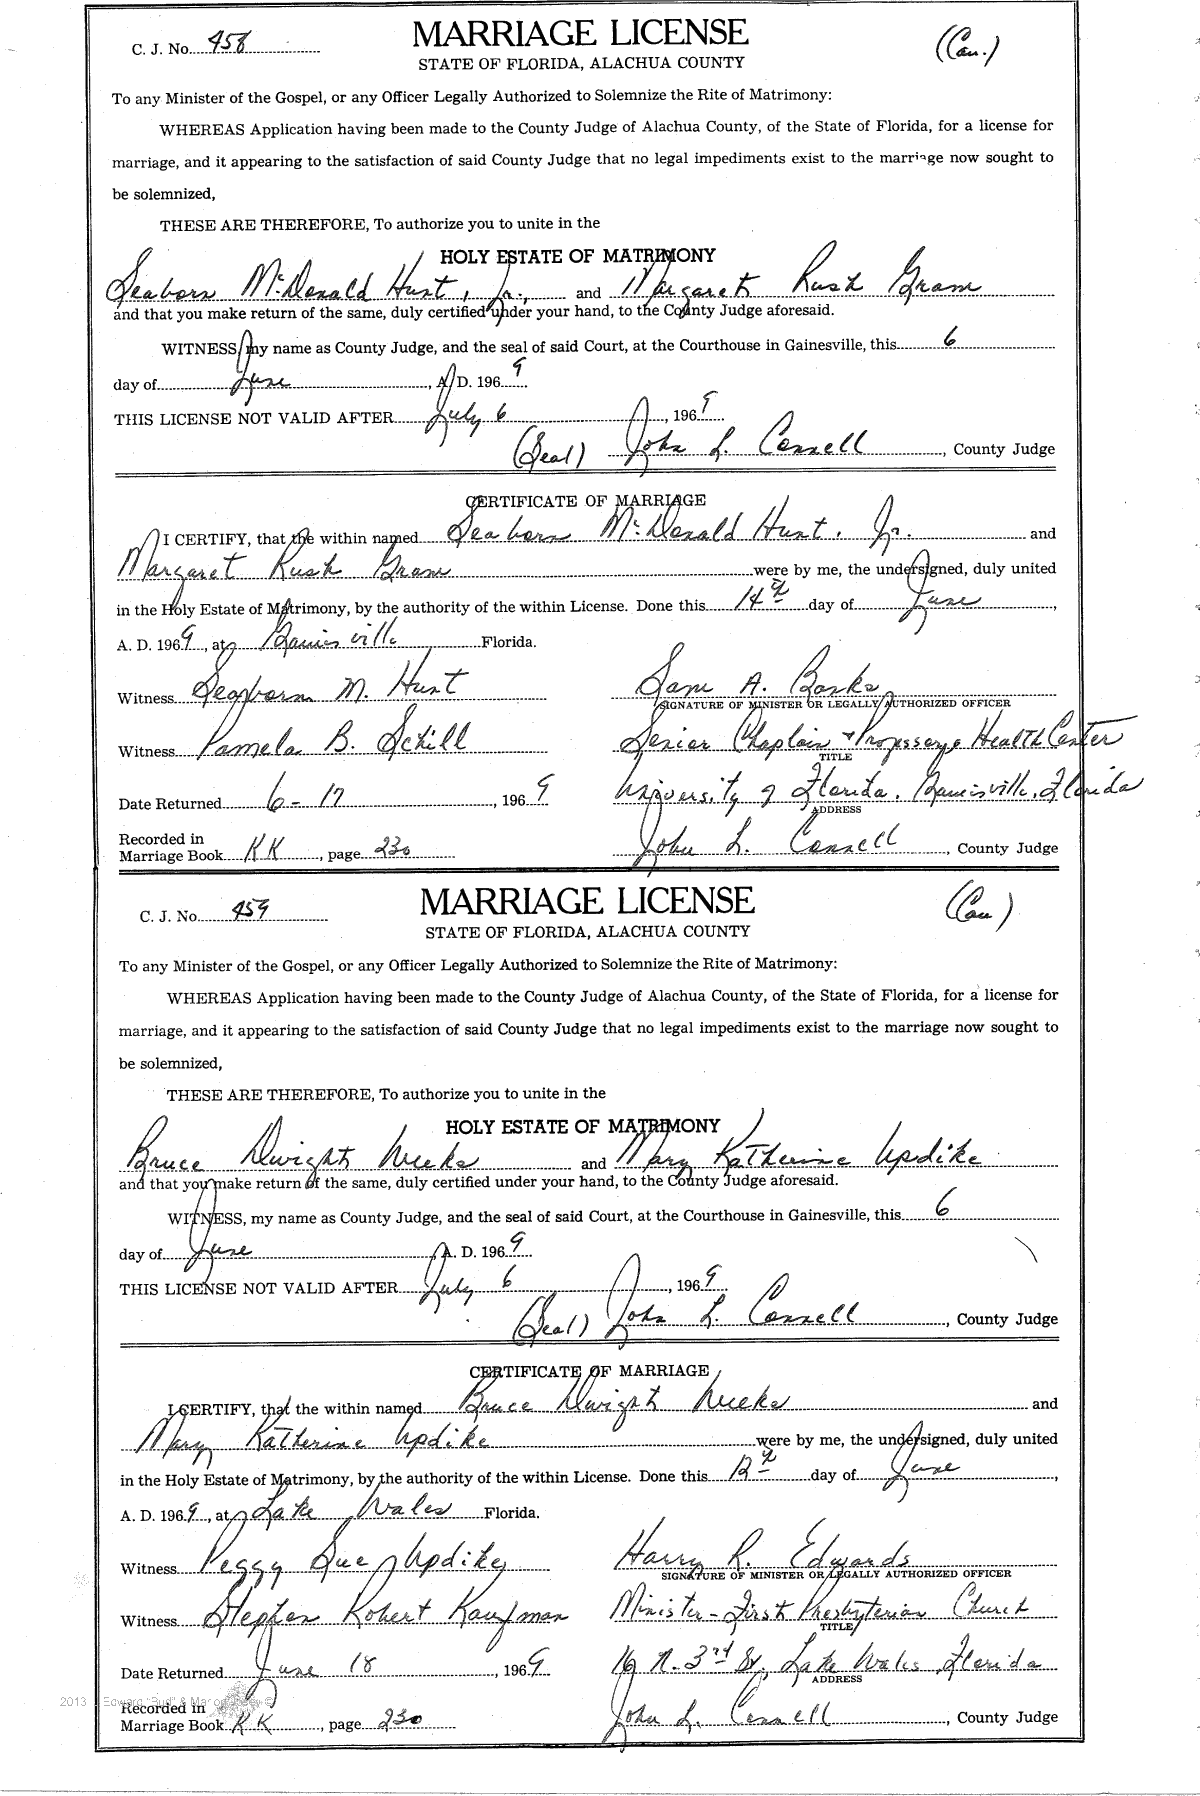 C. J. No. 458
MARRIAGE LICENSE
(Cau.)
STATE OF FLORIDA, ALACHUA COUNTY
To any Minister of the Gospel, or any Officer Legally Authorized to Solemnize the Rite of Matrimony:
WHEREAS Application having been made to the County Judge of Alachua County, of the State of Florida, for a license for
marriage, and it appearing to the satisfaction of said County Judge that no legal impediments exist to the marriage now sought to
be solemnized,
THESE ARE THEREFORE, To authorize you to unite in the
HOLY ESTATE OF MATRIMONY
Seaborn McDonald Hunt, Jr., and Margaret Rush Gram
and that you make return of the same, duly certified under your hand, to the County Judge aforesaid.
WITNESS, my name as County Judge, and the seal of said Court, at the Courthouse in Gainesville, this 6
day of June, A. D. 1969.
THIS LICENSE NOT VALID AFTER July 6, 1969
(Seal) John L. Connell, County Judge
CERTIFICATE OF MARRIAGE
I CERTIFY, that the within named Seaborn McDonald Hunt, Jr. and
Margaret Rush Gram were by me, the undersigned, duly united
in the Holy Estate of Matrimony, by the authority of the within License. Done this 14th day of June,
A. D. 1969, at Gainesville Florida.
Witness Seaborn M. Hunt Sam A. Banks
SIGNATURE OF MINISTER OR LEGALLY AUTHORIZED OFFICER
Witness Pamela B. Schill Senior Chaplain & Professor, Health Center
TITLE
Date Returned 6-17, 1969 University of Florida, Gainesville, Florida
ADDRESS
Recorded in
Marriage Book KK, page 230 John L. Connell, County Judge
C. J. No. 459
MARRIAGE LICENSE
(Cau)
STATE OF FLORIDA, ALACHUA COUNTY
To any Minister of the Gospel, or any Officer Legally Authorized to Solemnize the Rite of Matrimony:
WHEREAS Application having been made to the County Judge of Alachua County, of the State of Florida, for a license for
marriage, and it appearing to the satisfaction of said County Judge that no legal impediments exist to the marriage now sought to
be solemnized,
THESE ARE THEREFORE, To authorize you to unite in the
HOLY ESTATE OF MATRIMONY
Bruce Dwight Weeks and Mary Katherine Updike
and that you make return of the same, duly certified under your hand, to the County Judge aforesaid.
WITNESS, my name as County Judge, and the seal of said Court, at the Courthouse in Gainesville, this 6
day of June A. D. 1969.
THIS LICENSE NOT VALID AFTER July 6, 1969
(Seal) John L. Connell, County Judge
CERTIFICATE OF MARRIAGE
I CERTIFY, that the within named Bruce Dwight Weeks and
Mary Katherine Updike were by me, the undersigned, duly united
in the Holy Estate of Matrimony, by the authority of the within License. Done this 12th day of June,
A. D. 1969, at Lake Wales Florida.
Witness Peggy Sue Updike Harry R. Edwards
SIGNATURE OF MINISTER OR LEGALLY AUTHORIZED OFFICER
Witness Stephen Robert Kaufman Minister - First Presbyterian Church
TITLE
Date Returned June 18, 1969 16 N. 3rd St., Lake Wales, Florida
ADDRESS
Recorded in
Marriage Book KK, page 230 John L. Connell, County Judge